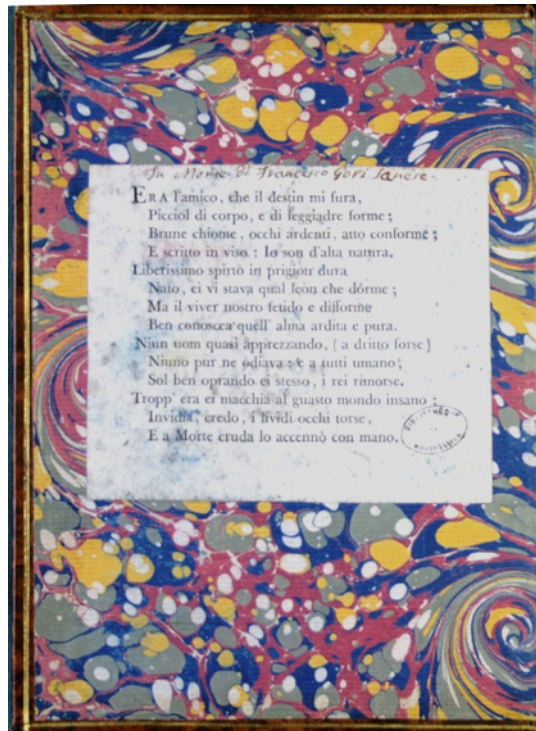 In Morte di Francesco Gori Sanese.
ERA l'amico, che il destin mi fura,
Picciol di corpo, e di leggiadre forme;
Brune chiome, occhi ardenti, atto conforme;
E scritto in viso: Io son d'alta natura.
Liberissimo spirto in prigion dura
Nato, ei vi stava qual leon che dorme;
Ma il viver nostro fetido e difforme
Ben conoscea quell' alma ardita e pura.
Niun uom quasi apprezzando, (a dritto forse)
Niuno pur ne odiava: e a tutti umano;
Sol ben oprando ei stesso, i rei rimorse.
Tropp' era ei macchia al guasto mondo insano:
Invidia, credo, i lividi occhi torse,
E a Morte cruda lo accennò con mano.